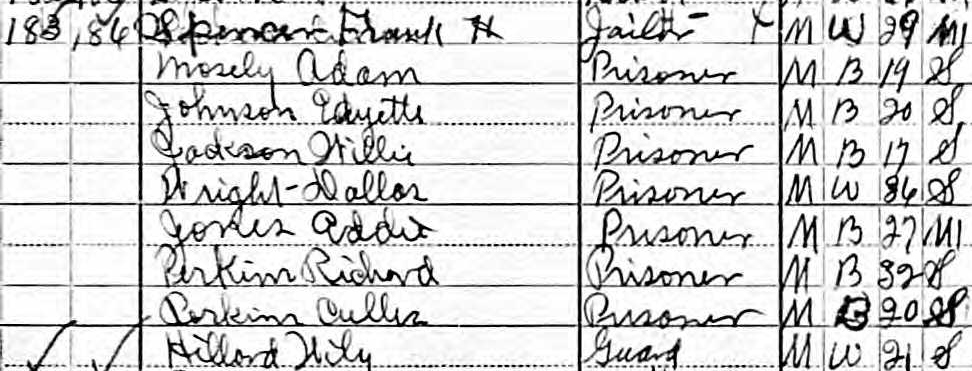 183 186 Spencer Frank H Jailor M W 29 M1
Mosely Adam Prisoner M B 19 S
Johnson Prisoner M B 20 S
Jackson Willie Prisoner M B 17 S
Wright-Dallas Prisoner M W 36 S
Jones Addie Prisoner M B 27 M1
Perkins Richard Prisoner M B 32 S
Perkins Prisoner M B 20 S
Guard M W 21 S